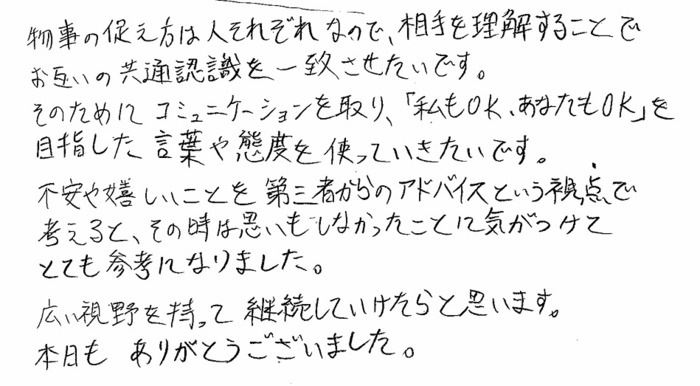 物事の促え方は人それぞれなので、相手を理解することで
お互いの共通認識を一致させたいです。
そのためにコミュニケーションを取り、「私もOK、あなたもOK」を
目指した言葉や態度を使っていきたいです。
不安や嬉しいことを第三者からのアドバイスという視点で
考えると、その時は思いもしなかったことに気がつけて
とても参考になりました。
広い視野を持って継続していけたらと思います。
本日もありがとうございました。